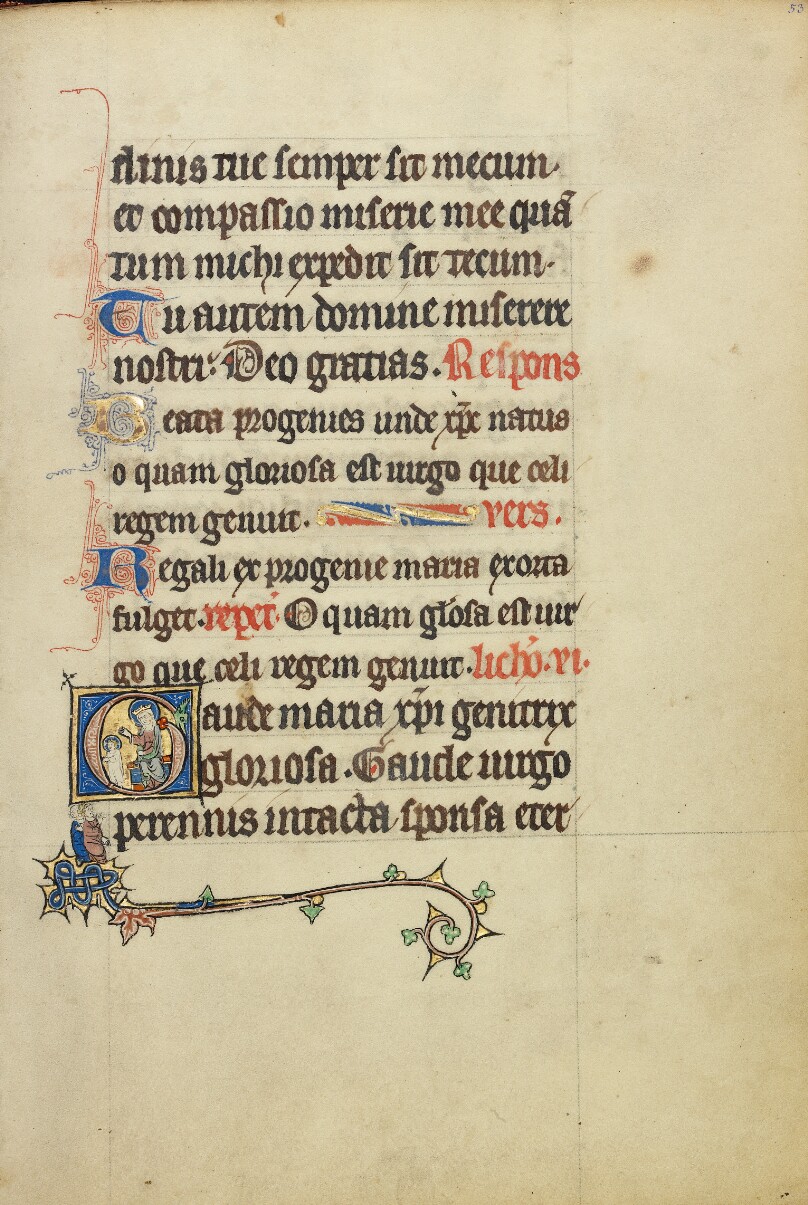 53
dinis tue semper sit mecum.
et compassio miserie mee quā
tum michi expedit sit tecum.
Tu autem domine miserere
nostri. Deo gratias. Respons
Beata progenies unde xp̄c natus
o quam gloriosa est uirgo que celi
regem genuit. vers.
Regali ex progenie maria exorta
fulget. repet̄. O quam gl̄osa est uir
go que celi regem genuit. lich̄o. vi.
Gaude maria xp̄i genitrix
gloriosa. Gaude uirgo
perennius intacta sponsa eter